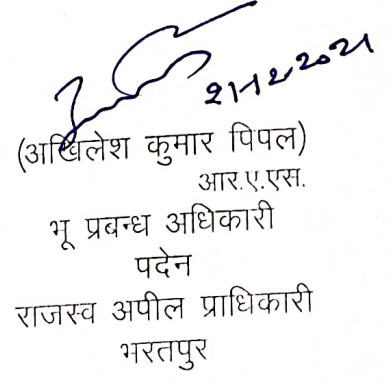 21-12-2021
(अखिलेश कुमार पिपल)
आर.ए.एस.
भू प्रबन्ध अधिकारी
पदेन
राजस्व अपील प्राधिकारी
भरतपुर